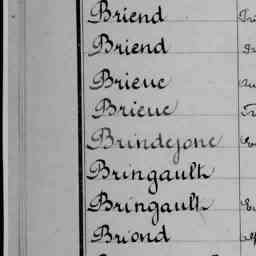 Briend
Briend
Brieuc
Brieuc
Brindejonc
Bringault
Bringault
Briond